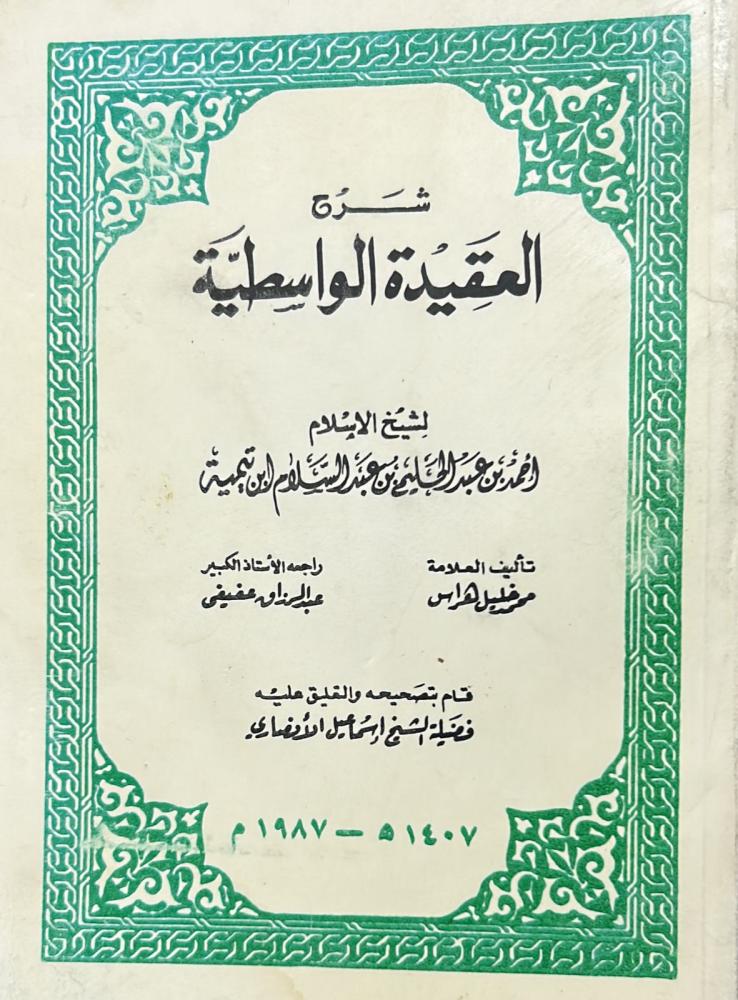 شرح
العقيدة الواسطية
لشيخ الإسلام
أحمد بن عبد الحليم بن عبد السلام ابن تيمية
تأليف العلامة
محمد خليل هراس
راجعه الأستاذ الكبير
عبد الرزاق عفيفي
قام بتصحيحه والتعليق عليه
فضيلة الشيخ إسماعيل الأنصاري
١٤٠٧ ه — ١٩٨٧ م